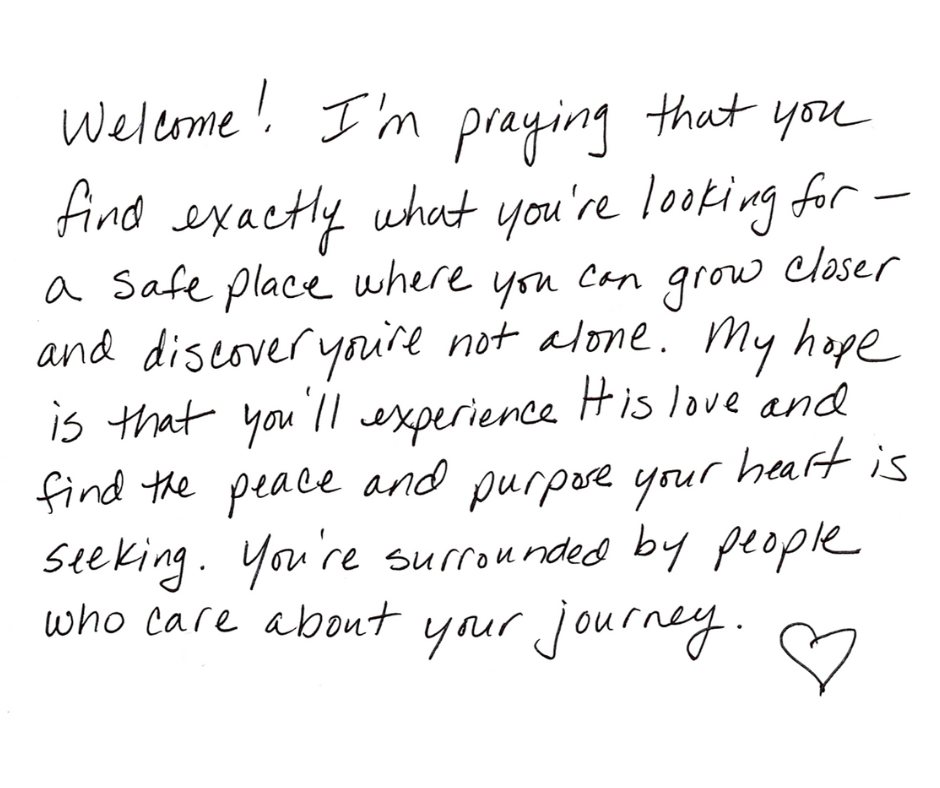 Welcome! I'm praying that you
find exactly what you're looking for —
a safe place where you can grow closer
and discover you're not alone. My hope
is that you'll experience His love and
find the peace and purpose your heart is
seeking. You're surrounded by people
who care about your journey.